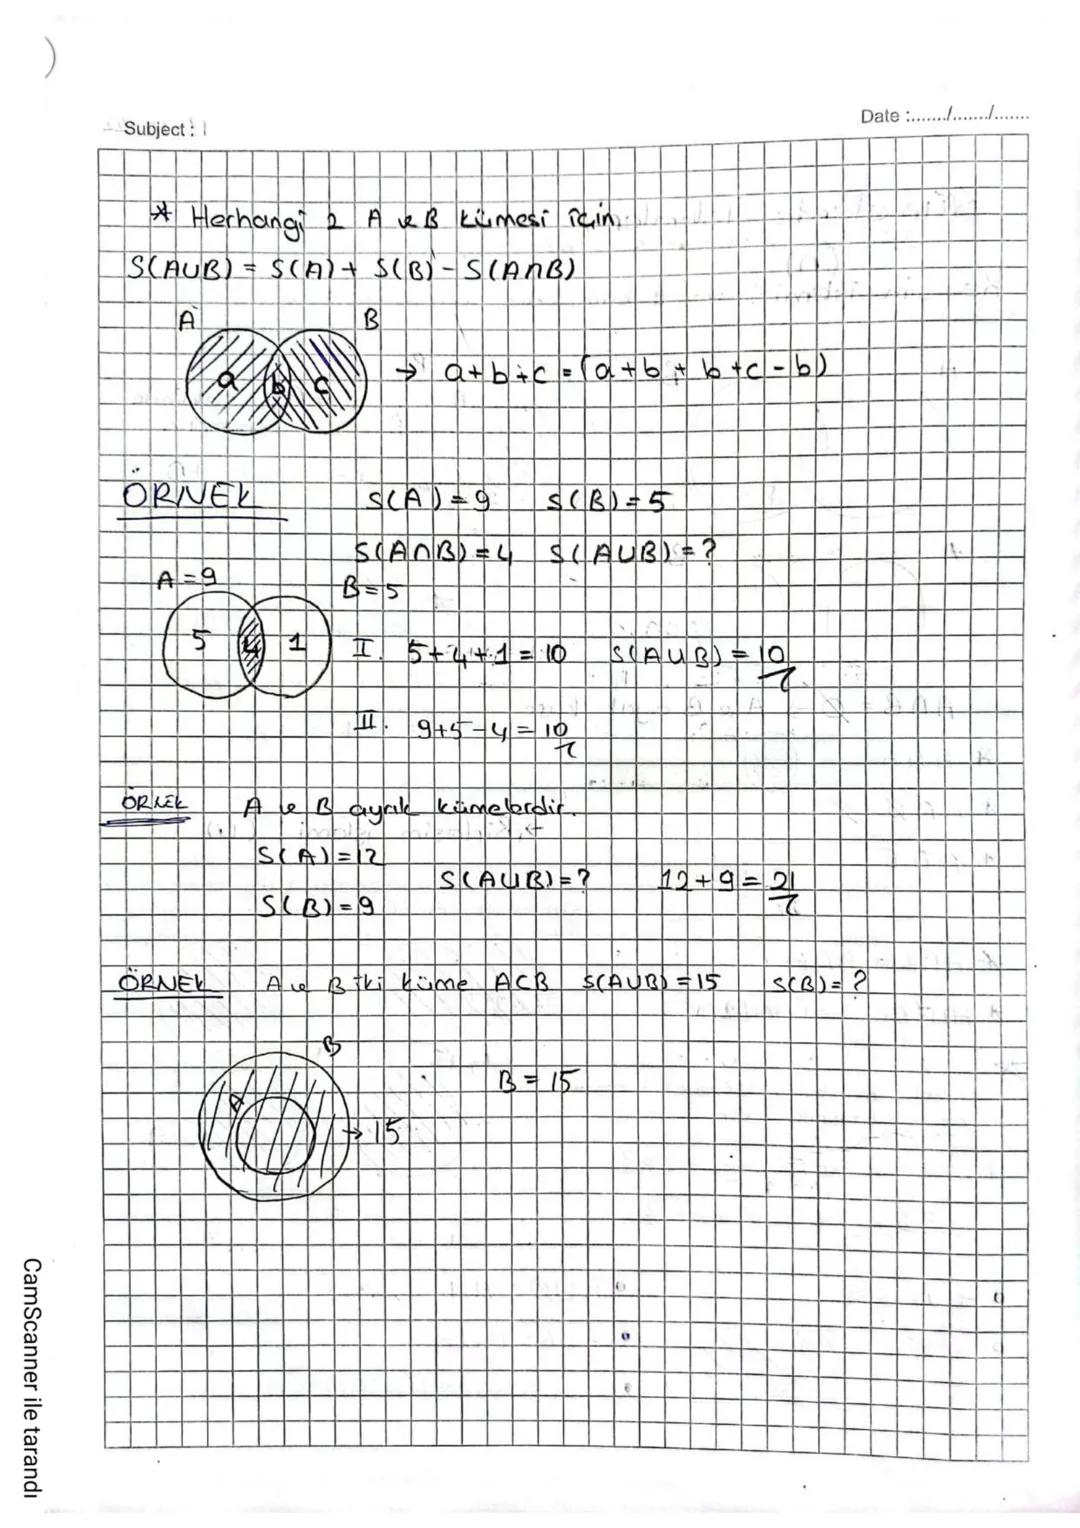 Subject :
Date :......../......../........
* Herhangi 2 A ve B kümesi için,
S(A∪B) = S(A) + S(B) - S(A∩B)
A B
a b c → a+b+c = (a+b + b+c - b)
ÖRNEK S(A)=9 S(B)=5
S(A∩B)=4 S(A∪B)=?
A=9 B=5
5 4 1 I. 5+4+1=10 S(A∪B)=10
II. 9+5-4=10
ÖRNEK A ve B ayrık kümelerdir.
S(A)=12
S(A∪B)=? 12+9=21
S(B)=9
ÖRNEK A ve B iki küme A⊂B S(A∪B)=15 S(B)=?
B
A → 15 B=15
CamScanner ile tarandı